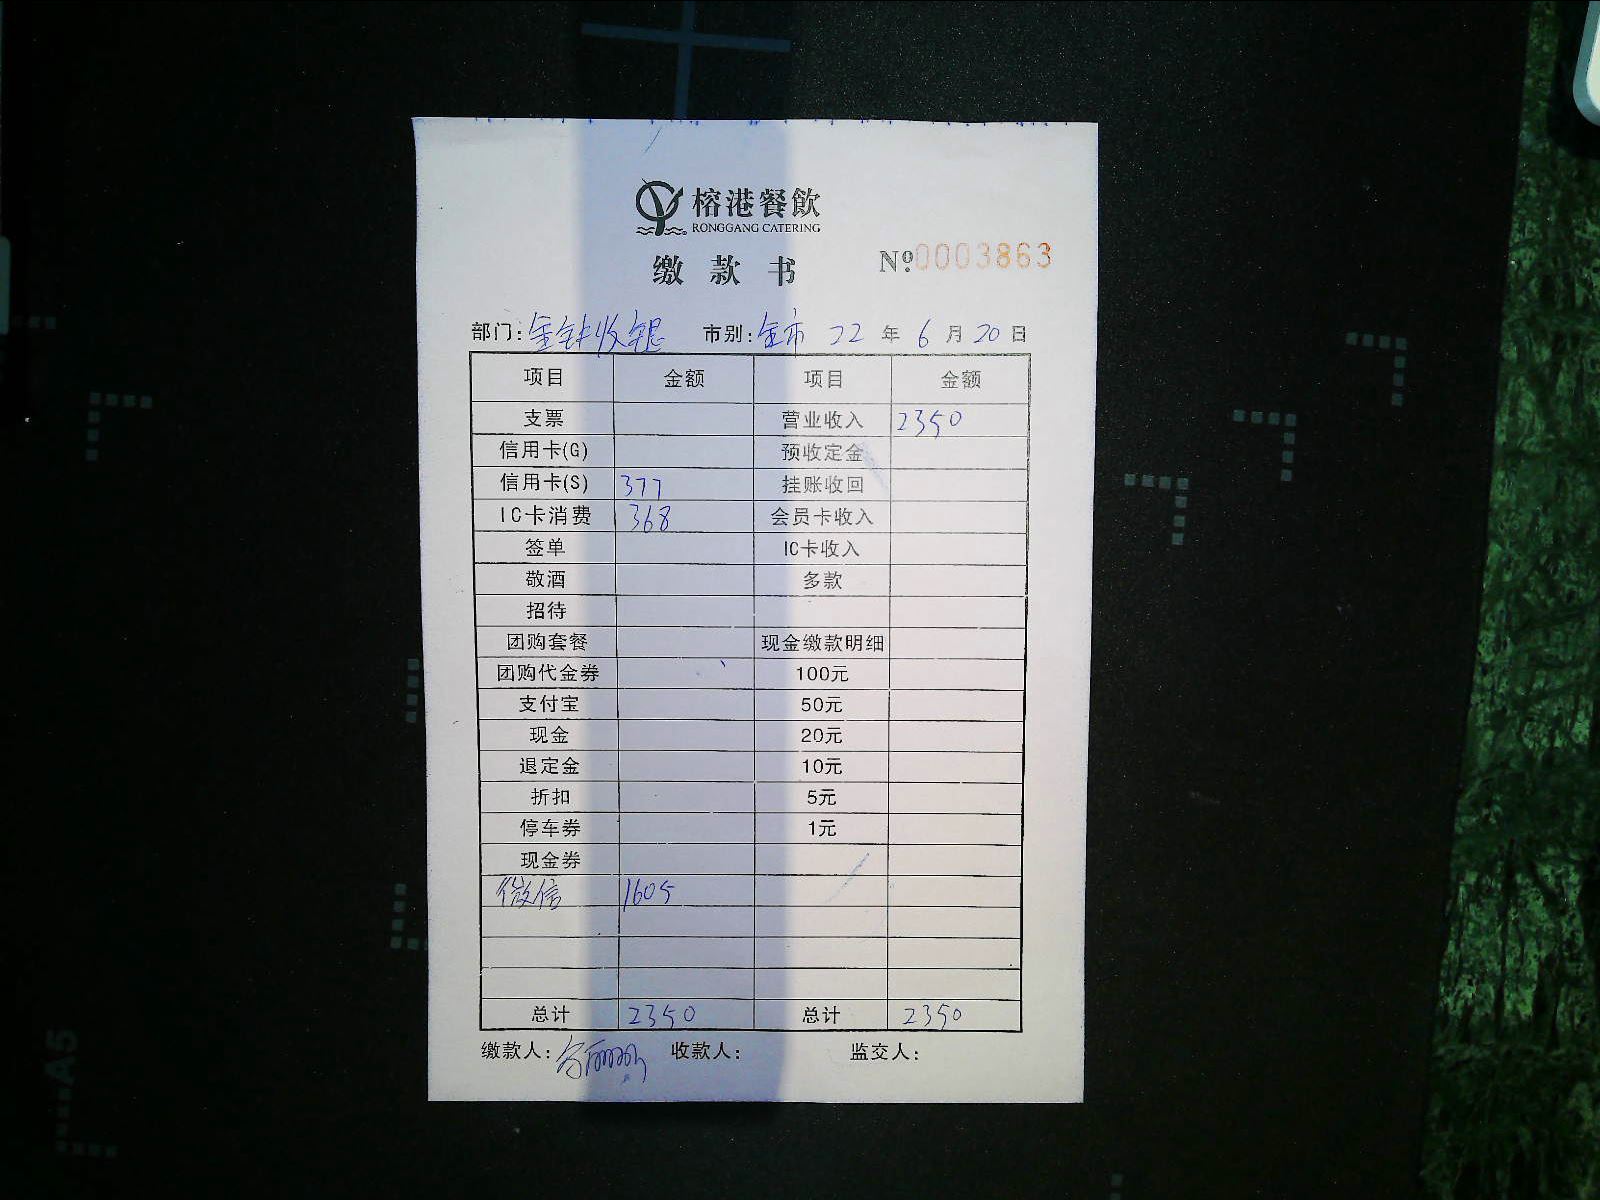 榕港餐飲
RONGGANG CATERING
缴款书 №0003863
部门: 金钻收银 市别: 全市 22 年 6 月 20 日
项目 金额 项目 金额
支票 营业收入 2350
信用卡(G) 预收定金
信用卡(S) 377 挂账收回
IC卡消费 368 会员卡收入
签单 IC卡收入
敬酒 多款
招待
团购套餐 现金缴款明细
团购代金券 100元
支付宝 50元
现金 20元
退定金 10元
折扣 5元
停车券 1元
现金券
微信 1605
总计 2350 总计 2350
缴款人: 收款人: 监交人: